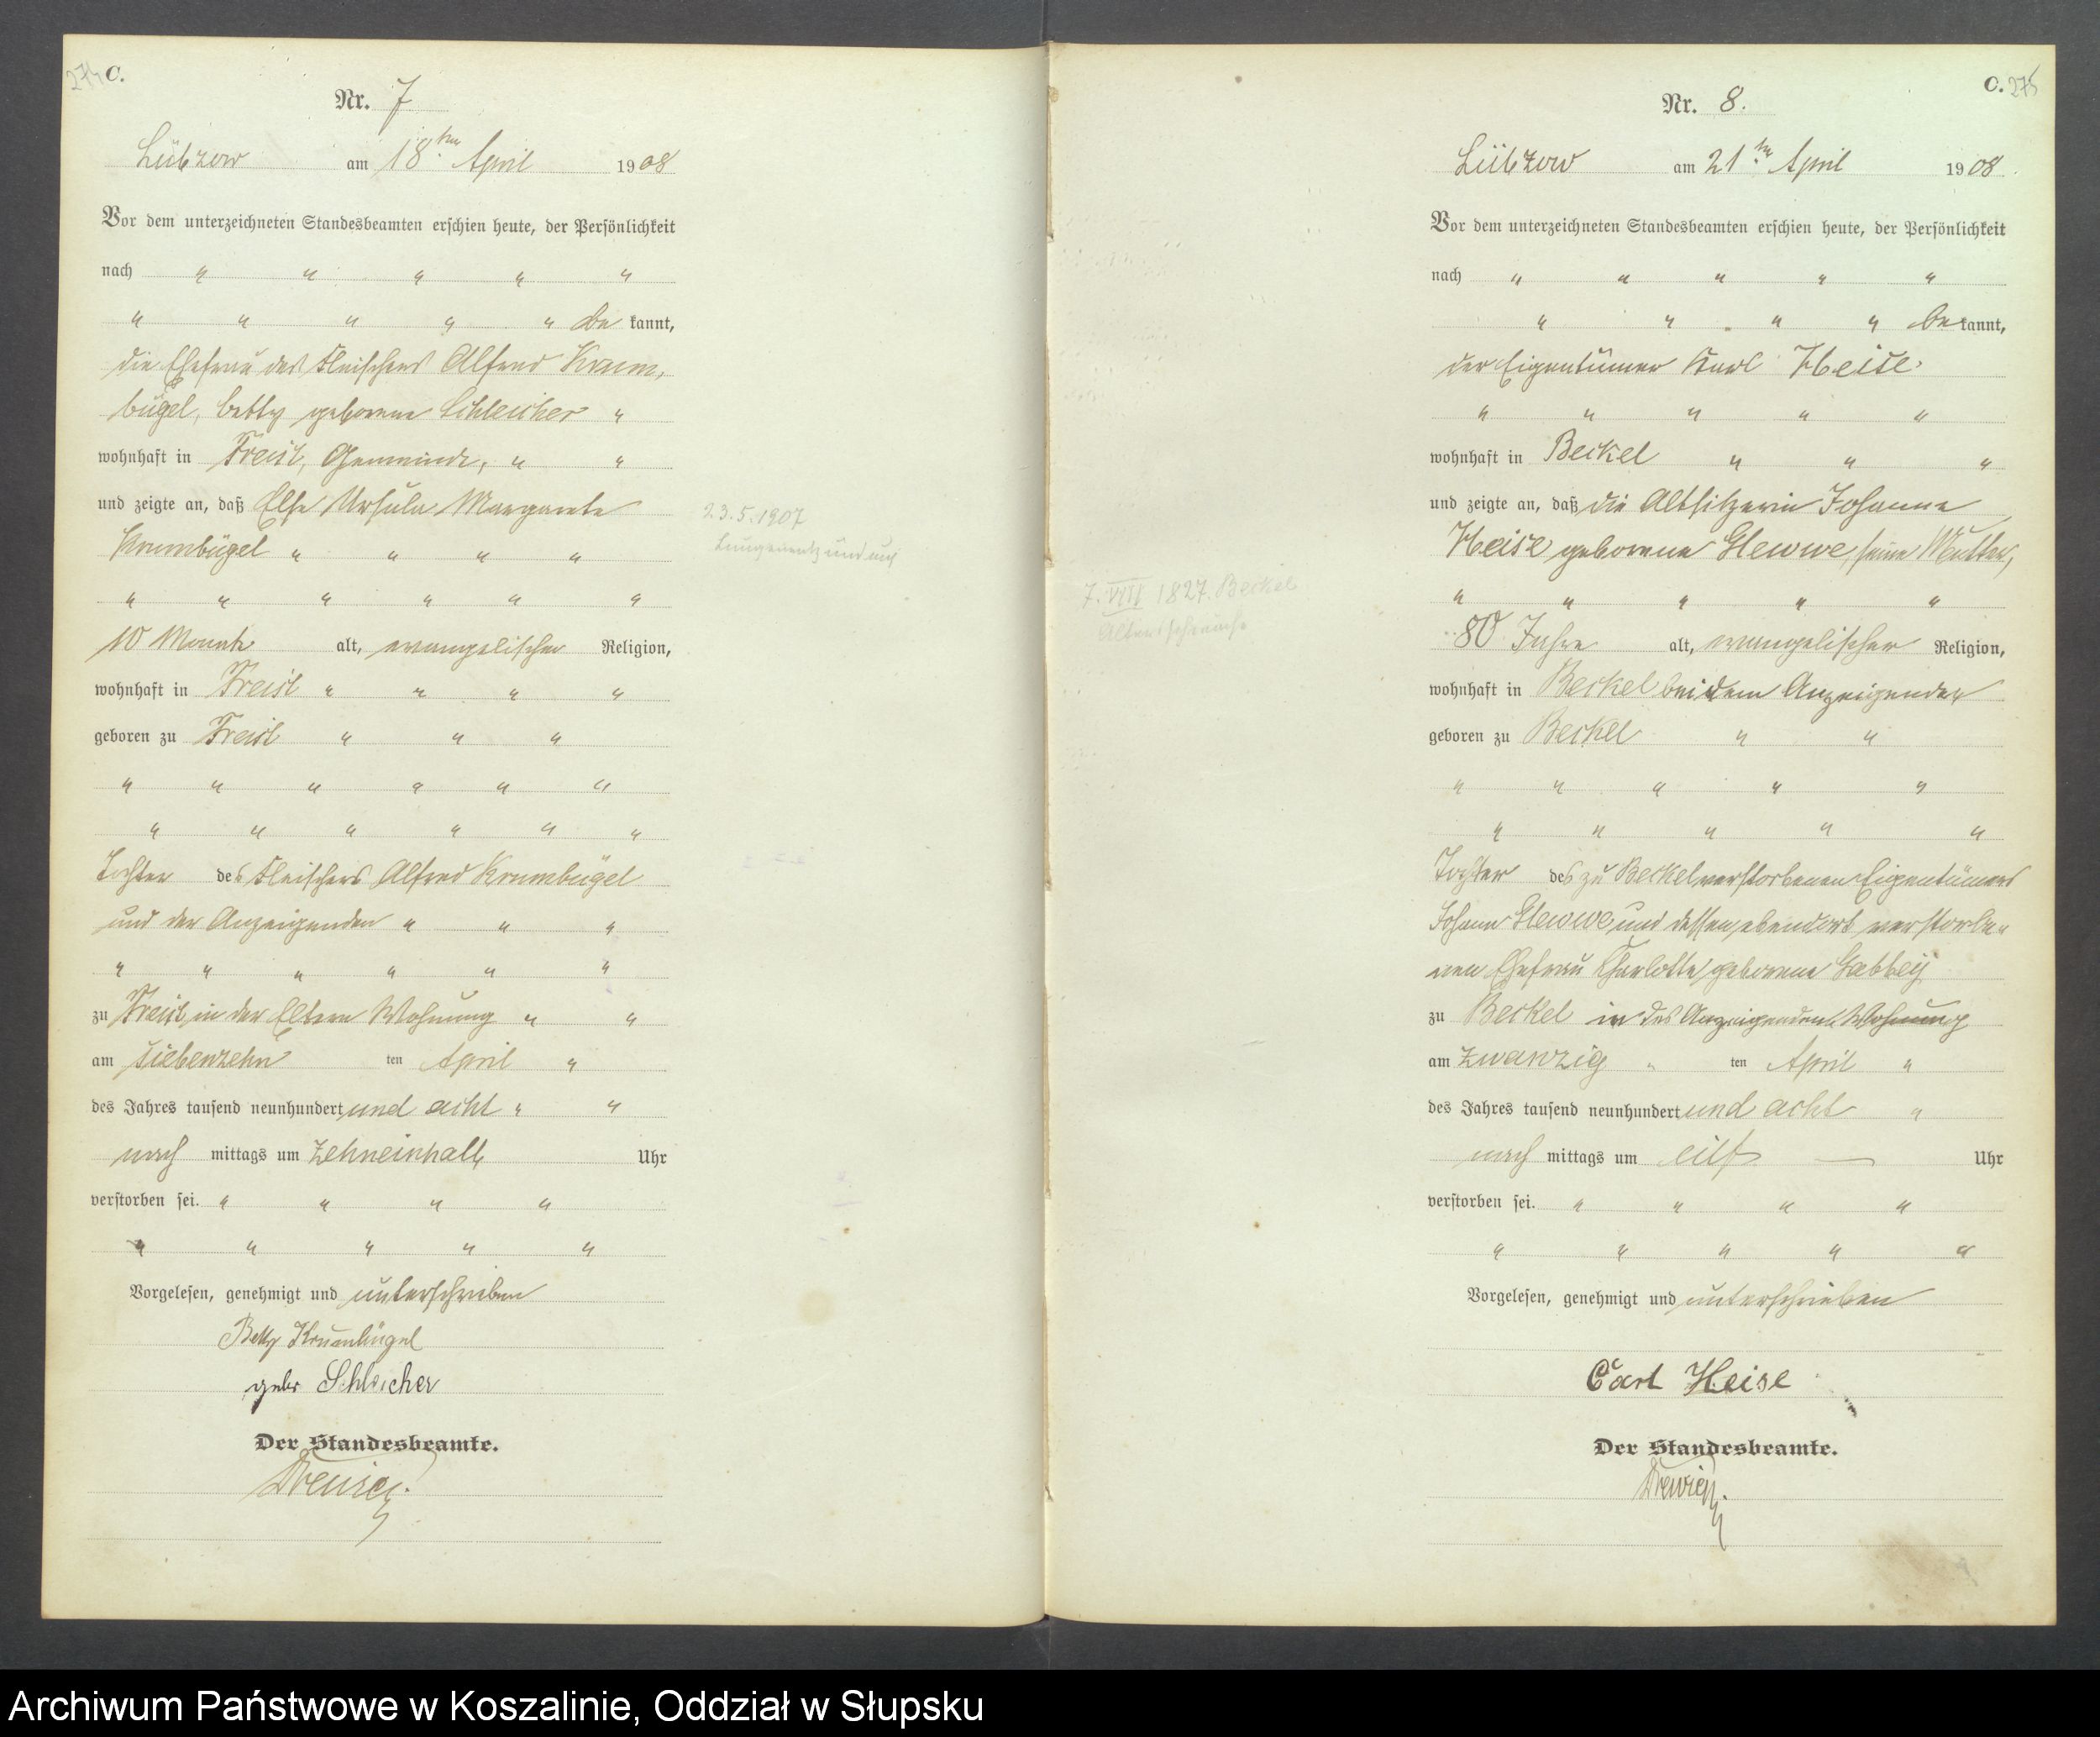 C.
Nr. 7
Lübzow am 18ten April 1908
Vor dem unterzeichneten Standesbeamten erschien heute, der Persönlichkeit
nach " " " " "
" " " " " be kannt,
die Ehefrau des Fleischers Alfred Krum,
bügel, Betty geborene Schleicher "
wohnhaft in Freist, Gemeinde, " "
und zeigte an, daß Else Ursula Margarete
Krumbügel " " " "
" " " " " "
10 Monate alt, evangelischer Religion,
wohnhaft in Freist " " " "
geboren zu Freist " " "
" " " " " "
" " " " " "
Tochter des Fleischers Alfred Krumbügel
und der Anzeigenden " " "
" " " " " "
zu Freist, in der Eltern Wohnung " "
am siebenzehn ten April "
des Jahres tausend neunhundert und acht " "
nach mittags um zehneinhalb Uhr
verstorben sei. " " " "
" " " " "
Vorgelesen, genehmigt und unterschrieben
Betty Krumbügel
geb. Schleicher
Der Standesbeamte.
23.5.1907
C. 275
Nr. 8.
Lübzow am 21ten April 1908.
Vor dem unterzeichneten Standesbeamten erschien heute, der Persönlichkeit
nach " " " " "
" " " " be kannt,
der Eigentümer Karl Heise
" " " " "
wohnhaft in Beckel " " "
und zeigte an, daß die Altsitzerin Johanne
Heise geborene Glewwe, seine Mutter,
" " " " "
80 Jahre alt, evangelischer Religion,
wohnhaft in Beckel bei dem Anzeigenden
geboren zu Beckel " "
" " " " "
" " " " "
Tochter des zu Beckel verstorbenen Eigentümers
Johann Glewwe und dessen ebendort verstorbe-
nen Ehefrau Charlotte geborene Gabbey
zu Beckel in des Anzeigenden Wohnung
am zwanzig " ten April "
des Jahres tausend neunhundert und acht "
nach mittags um eilf — Uhr
verstorben sei. " " " "
" " " " "
Vorgelesen, genehmigt und unterschrieben
Carl Heise
Der Standesbeamte.
7. VIII 1827. Beckel
Altersschwäche
Archiwum Państwowe w Koszalinie, Oddział w Słupsku